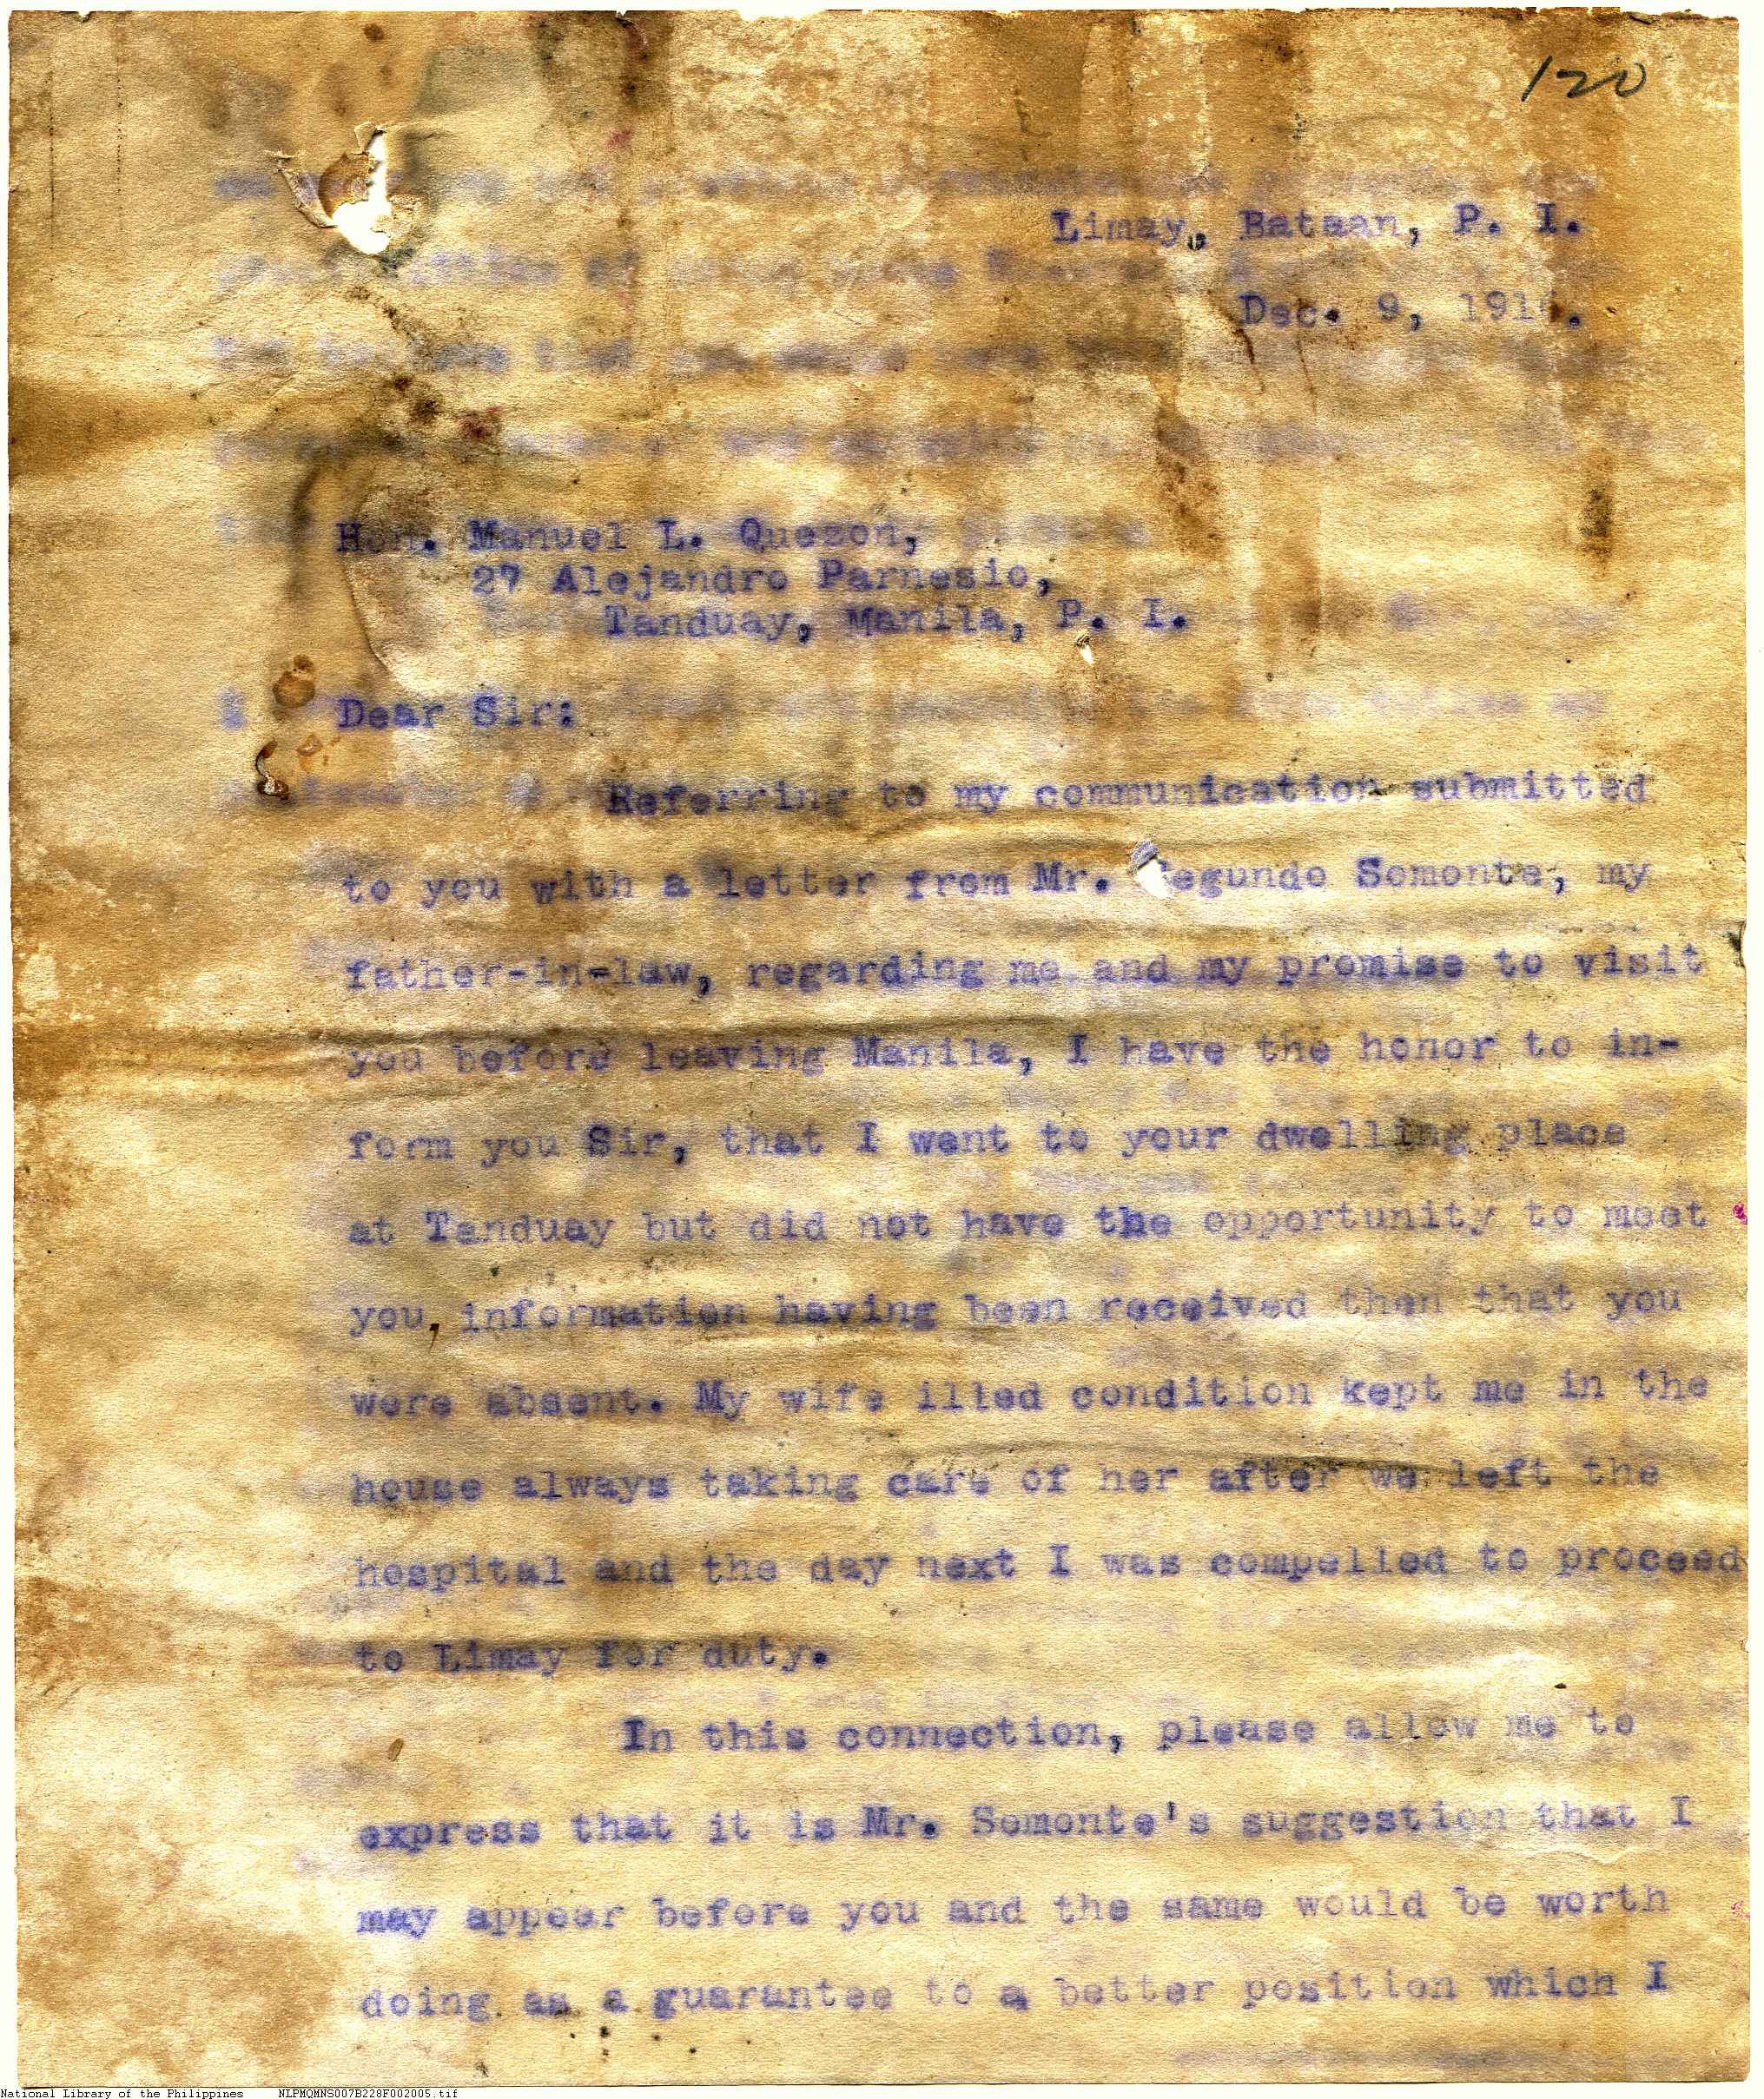 120
Limay, Bataan, P. I.
Dec. 9, 191
Hon. Manuel L. Quezon,
27 Alejandro Parnesio,
Tanduay, Manila, P. I.
Dear Sir:
Referring to my communication submitted
to you with a letter from Mr. Segundo Somonte, my
father-in-law, regarding me and my promise to visit
you before leaving Manila, I have the honor to in-
form you Sir, that I went to your dwelling place
at Tanduay but did not have the opportunity to meet
you, information having been received then that you
were absent. My wife illed condition kept me in the
house always taking care of her after we left the
hospital and the day next I was compelled to proceed
to Limay for duty.
In this connection, please allow me to
express that it is Mr. Somonte's suggestion that I
may appear before you and the same would be worth
doing as a guarantee to a better position which I
National Library of the Philippines NLPMQMNS007B228F002005.tif